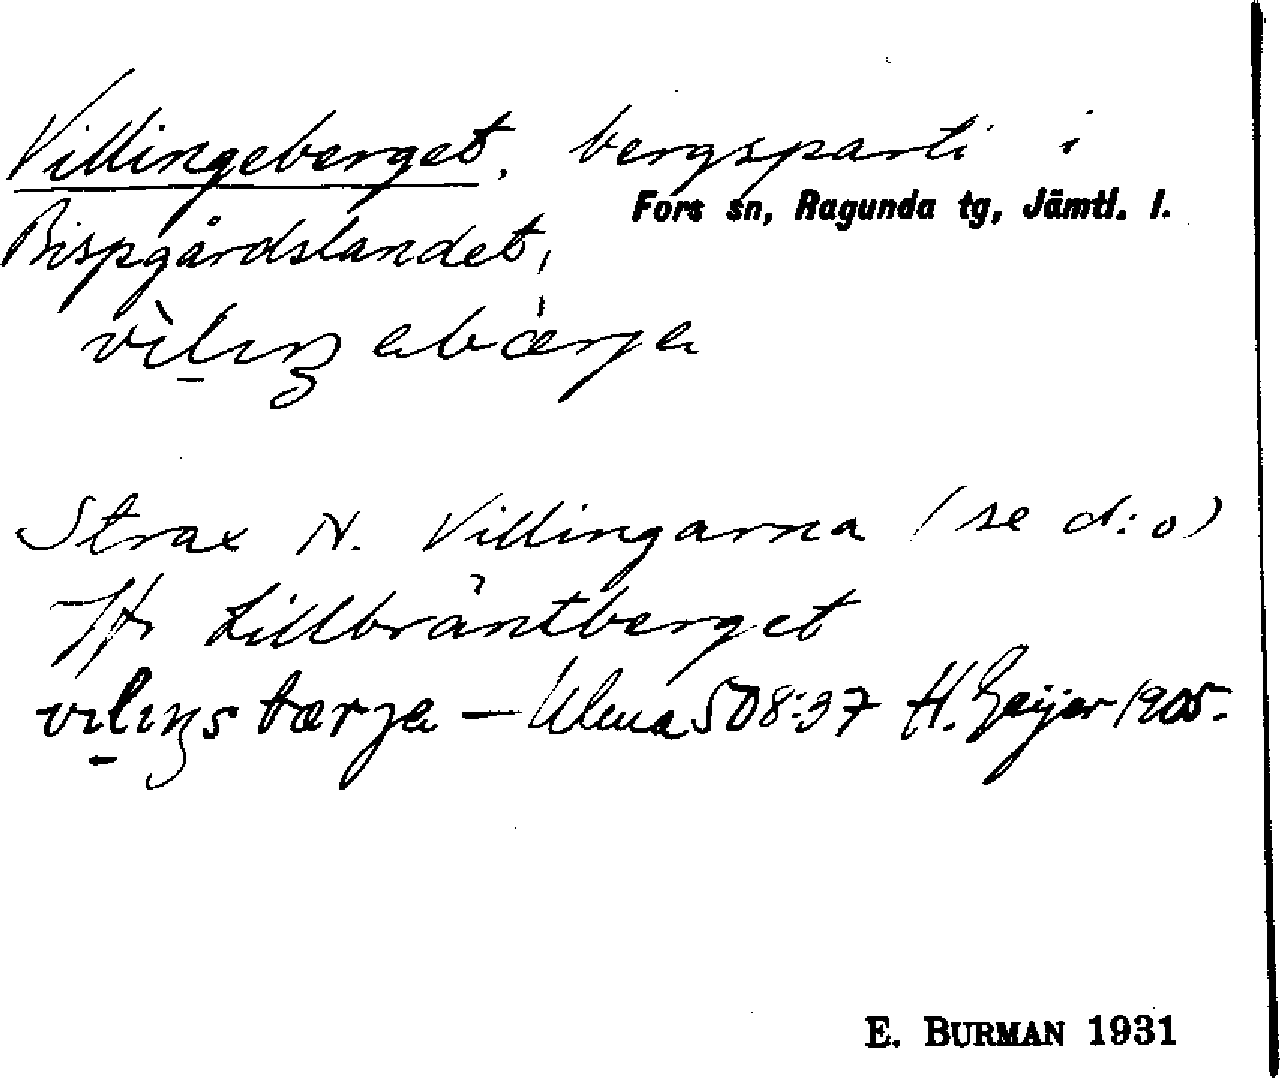 Villingeberget, bergsparti i
Fors sn, Ragunda tg, Jämtl. l.
Bispgårdslandet,
vìlıŋabærja
Strax N. Villingarna (se d:o)
Jfr Lillbräntberget
vılıŋsbærja – Ulma 508:37 H. Geijer 1905.
E. BURMAN 1931